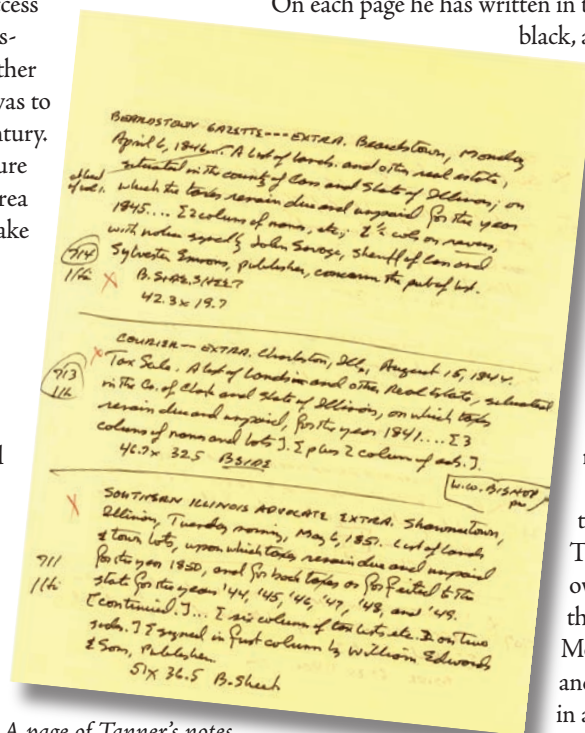 ccess
s-
ther
was to
ntury.
ure
rea
ake
On each page he has written in t
black, a
BEARDSTOWN GAZETTE---EXTRA. Beardstown, Monday
April 6, 1846... A List of lands. and other real estate,
situated in the county of Cass and State of Illinois; on
which the taxes remain due and unpaid for the year
1845.... [2 columns of names, etc; [ 1/2 cols on
with notice by John Savage, sheriff of Cass and
Sylvester Emmons, publisher, concern the of list.
714
1/6
X
B.SIDE.SHEET
42.3 x 19.7
COURIER—EXTRA. Charleston, Ill., August 15, 1842.
X
Tax Sale. A list of Lands and other Real Estate, situated
713
1/6
in the Co. of Clark and State of Illinois, on which taxes
remain due and unpaid, for the year 1841.... [3
columns of names and lots]. [plus 2 column of ads.].
46.7 x 32.5 BSIDE
W.W. BISHOP
X
SOUTHERN ILLINOIS ADVOCATE EXTRA. Shawneetown,
Illinois, Tuesday morning, May 6, 1851. List of Lands
& town lots, upon which taxes remain due and unpaid
711
for the year 1850, and for back taxes as forfeited to the
1/6
state for the years '44, '45, '46, '47, '48, and '49.
[continued.]... [six column of tax lists etc. on two
sides.] [signed in first column by William Edwards
& Son, Publishers.
51 x 36.5 B.Sheet
l
r
t
T
ov
th
Mo
and
in a
A page of Tanner's notes